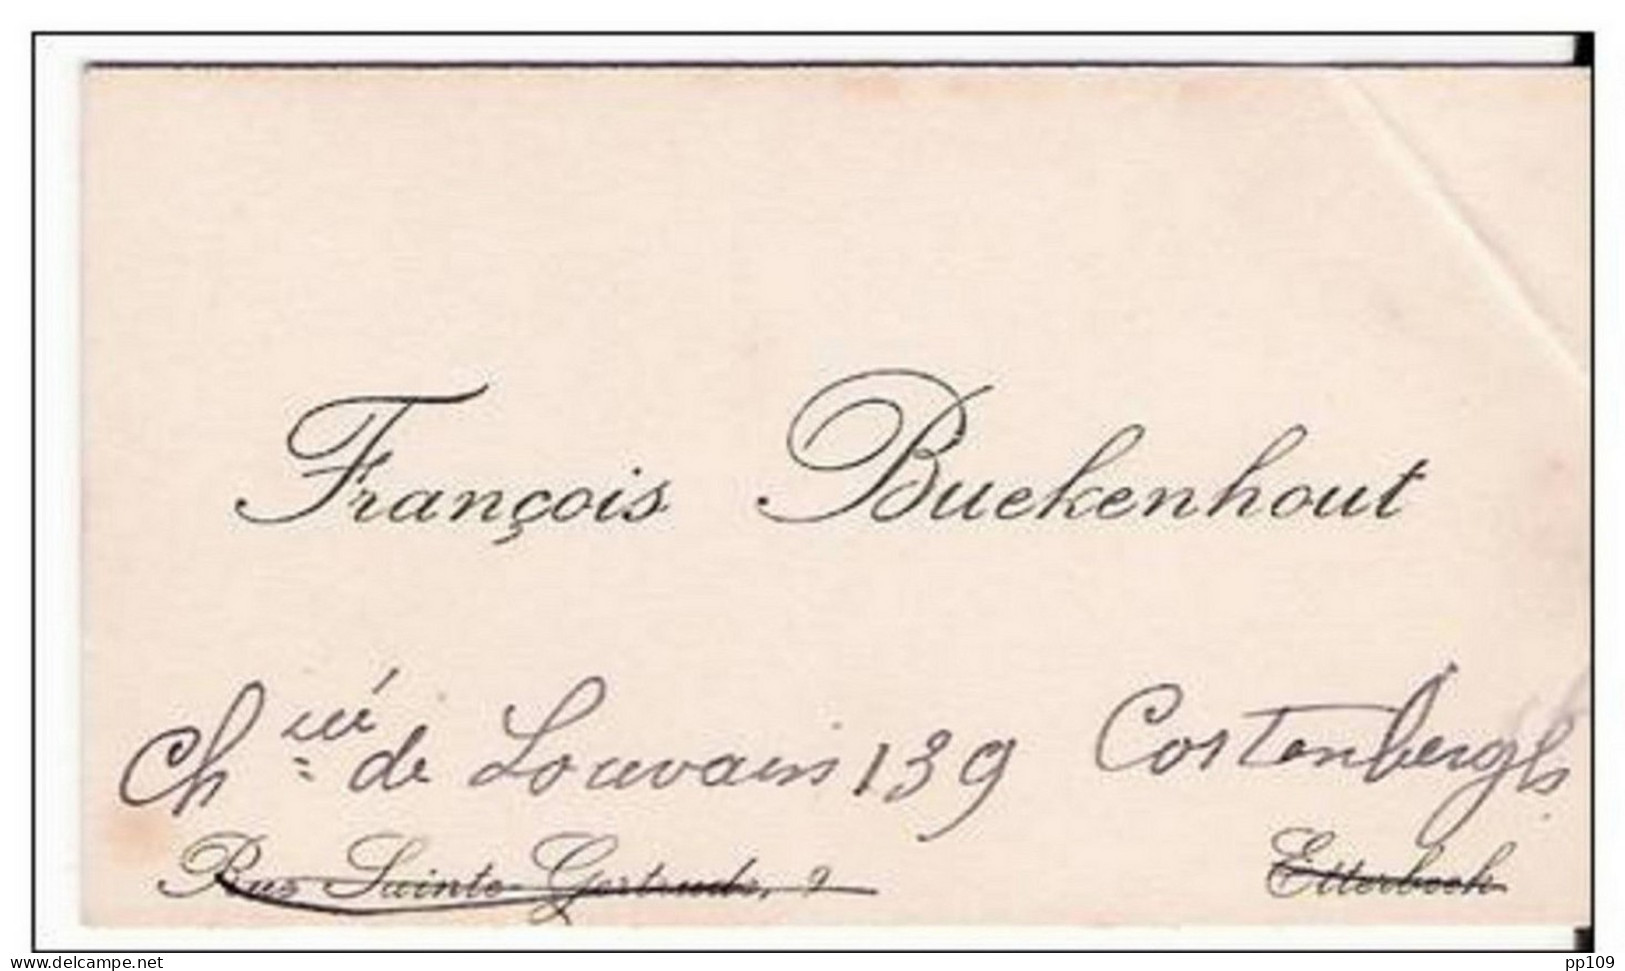 François Buekenhout
Ch^ée de Louvain 139 Costenbergh
Rue Sainte Gertrude, 9 Etterbeek
www.delcampe.net pp109